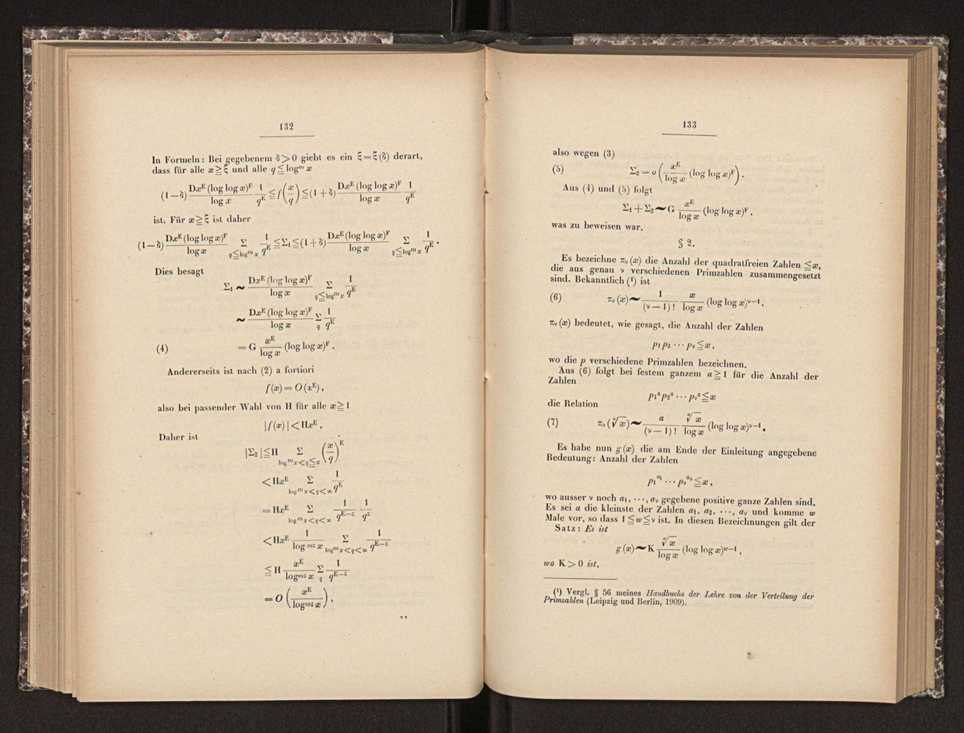 132
In Formeln: Bei gegebenem δ>0 giebt es ein ξ=ξ(δ) derart,
dass für alle x≧ξ und alle q≦logᵐ x
(1−δ) Dxᴱ(log log x)ᶠ / log x · 1/qᴱ ≦ f(x/q) ≦ (1+δ) Dxᴱ(log log x)ᶠ / log x · 1/qᴱ
ist. Für x≧ξ ist daher
(1−δ) Dxᴱ(log log x)ᶠ / log x Σ_{q≦logᵐ x} 1/qᴱ ≦ Σ₁ ≦ (1+δ) Dxᴱ(log log x)ᶠ / log x Σ_{q≦logᵐ x} 1/qᴱ.
Dies besagt
Σ₁ ∼ Dxᴱ(log log x)ᶠ / log x Σ_{q≦logᵐ x} 1/qᴱ
∼ Dxᴱ(log log x)ᶠ / log x Σ_q 1/qᴱ
(4) = G xᴱ / log x (log log x)ᶠ.
Andererseits ist nach (2) a fortiori
f(x) = O(xᴱ),
also bei passender Wahl von H für alle x≧1
|f(x)| < Hxᴱ.
Daher ist
|Σ₂| ≦ H Σ_{logᵐ x<q≦x} (x/q)ᴱ
< Hxᴱ Σ_{logᵐ x<q<∞} 1/qᴱ
= Hxᴱ Σ_{logᵐ x<q<∞} 1/q^{E−ε} · 1/q^ε
< Hxᴱ 1/log^{mε} x Σ_{logᵐ x<q<∞} 1/q^{E−ε}
≦ H xᴱ/log^{mε} x Σ_q 1/q^{E−ε}
= O (xᴱ/log^{mε} x).
133
also wegen (3)
(5) Σ₂ = o (xᴱ/log x (log log x)ᶠ).
Aus (4) und (5) folgt
Σ₁ + Σ₂ ∼ G xᴱ/log x (log log x)ᶠ,
was zu beweisen war.
§ 2.
Es bezeichne π_ν(x) die Anzahl der quadratfreien Zahlen ≦x,
die aus genau ν verschiedenen Primzahlen zusammengesetzt
sind. Bekanntlich (¹) ist
(6) π_ν(x) ∼ 1/(ν−1)! x/log x (log log x)^{ν−1}.
π_ν(x) bedeutet, wie gesagt, die Anzahl der Zahlen
p₁p₂ ··· p_ν ≦ x,
wo die p verschiedene Primzahlen bezeichnen.
Aus (6) folgt bei festem ganzem a≧1 für die Anzahl der
Zahlen
p₁ᵃp₂ᵃ ··· p_νᵃ ≦ x
die Relation
(7) π_ν(ᵃ√x) ∼ a/(ν−1)! ᵃ√x/log x (log log x)^{ν−1}.
Es habe nun g(x) die am Ende der Einleitung angegebene
Bedeutung: Anzahl der Zahlen
p₁^{a₁} ··· p_ν^{a_ν} ≦ x,
wo ausser ν noch a₁, ···, a_ν gegebene positive ganze Zahlen sind.
Es sei a die kleinste der Zahlen a₁, a₂, ···, a_ν und komme w
Male vor, so dass 1≦w≦ν ist. In diesen Bezeichnungen gilt der
Satz: Es ist
g(x) ∼ K ᵃ√x/log x (log log x)^{w−1},
wo K>0 ist.
(¹) Vergl. § 56 meines Handbuchs der Lehre von der Verteilung der
Primzahlen (Leipzig und Berlin, 1909).